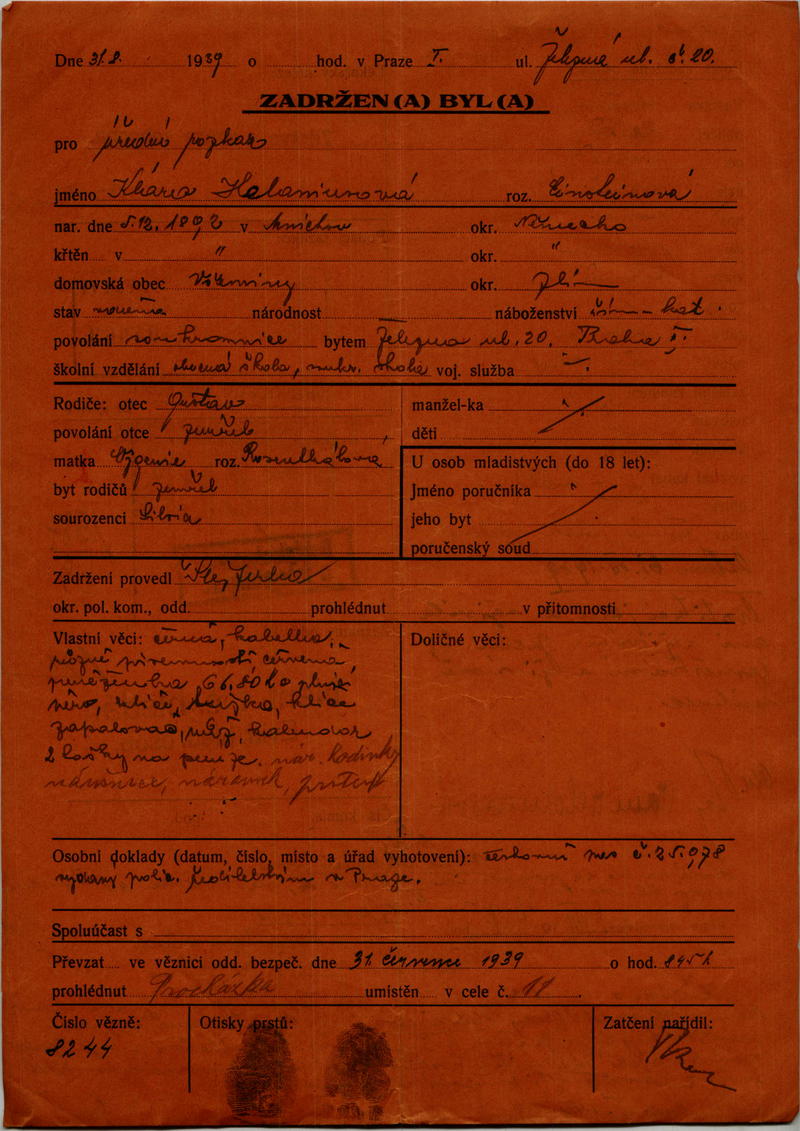 Dne 31.8. 1939 o hod. v Praze I. ul. Železná ul. č. 20.
ZADRŽEN(A) BYL(A)
pro úřední rozkaz
jméno Klára roz. Einsteinová
nar. dne 5.12.1892 v Mnichov okr. Německo
křtěn v " okr. "
domovská obec okr. Zlín
stav národnost náboženství řím-kat.
povolání soukromnice bytem Železná ul. 20, Praha I.
školní vzdělání obecná škola, soukr. škola voj. služba
Rodiče: otec Gustav manžel-ka
povolání otce zemřel děti
matka Eugenie roz.
byt rodičů zemřel
sourozenci Silvia
U osob mladistvých (do 18 let):
Jméno poručníka
jeho byt
poručenský soud
Zadržení provedl
okr. pol. kom., odd. prohlédnut v přítomnosti
Vlastní věci: černá kabelka,
různé písemnosti, červená
peněženka, 66,80 K plnicí
péro, klíč,
zapalovač, nůž, kalendář
2 tašky na peníze. nár. hodinky
náušnice, náramek, prsten
Doličné věci:
Osobní doklady (datum, číslo, místo a úřad vyhotovení): cestovní pas č. 25.978
vydaný polic. ředitelstvím v Praze.
Spoluúčast s
Převzat ve věznici odd. bezpeč. dne 31. července 1939 o hod. 845 h
prohlédnut Procházka umístěn v cele č. 11.
Číslo vězně: Otisky prstů: Zatčení nařídil:
8244